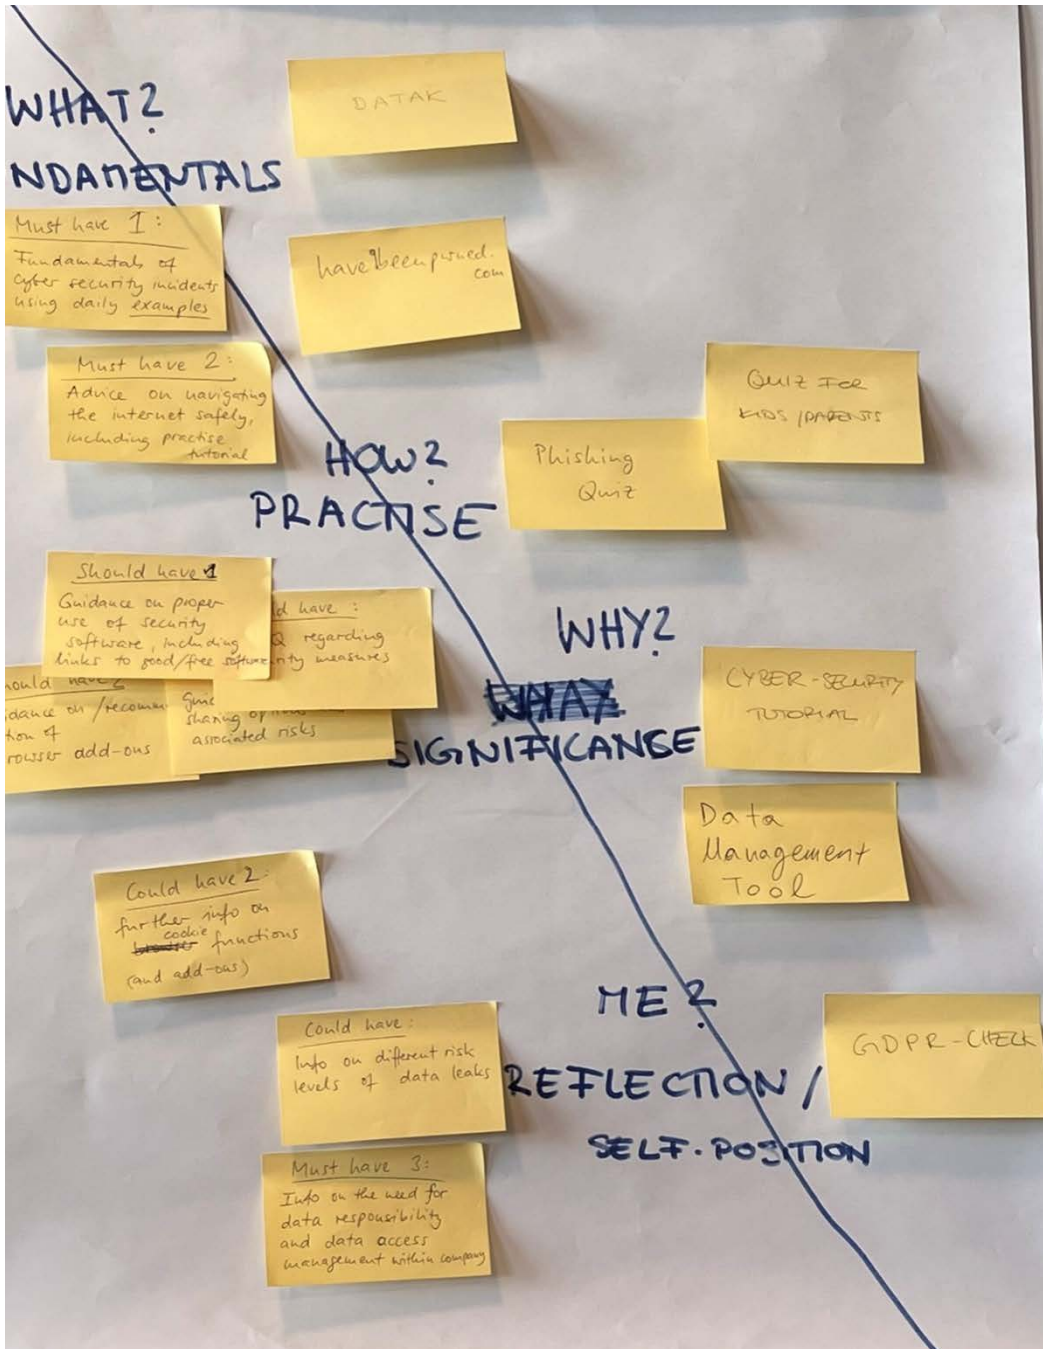 WHAT?
NDAMENTALS
DATAK
Must have 1:
Fundamentals of
cyber security incidents
using daily examples
have i been pwned.
com
Must have 2:
Advice on navigating
the internet safely,
including practise
tutorial
HOW?
PRACTISE
Phishing
Quiz
QUIZ FOR
KIDS/PARENTS
Should have 1
Guidance on proper
use of security
software, including
links to good/free software
ld have:
Q regarding
rity measures
ould have 2
idance on/recommen
tion of
rowser add-ons
sharing
associated risks
WHY?
SIGNIFICANSE
CYBER-SECURITY
TUTORIAL
Data
Management
Tool
Could have 2:
further info on
cookie
browser functions
(and add-ons)
ME?
REFLECTION/
SELF-POSITION
GDPR-CHECK
Could have:
Info on different risk
levels of data leaks
Must have 3:
Info on the need for
data responsibility
and data access
management within company